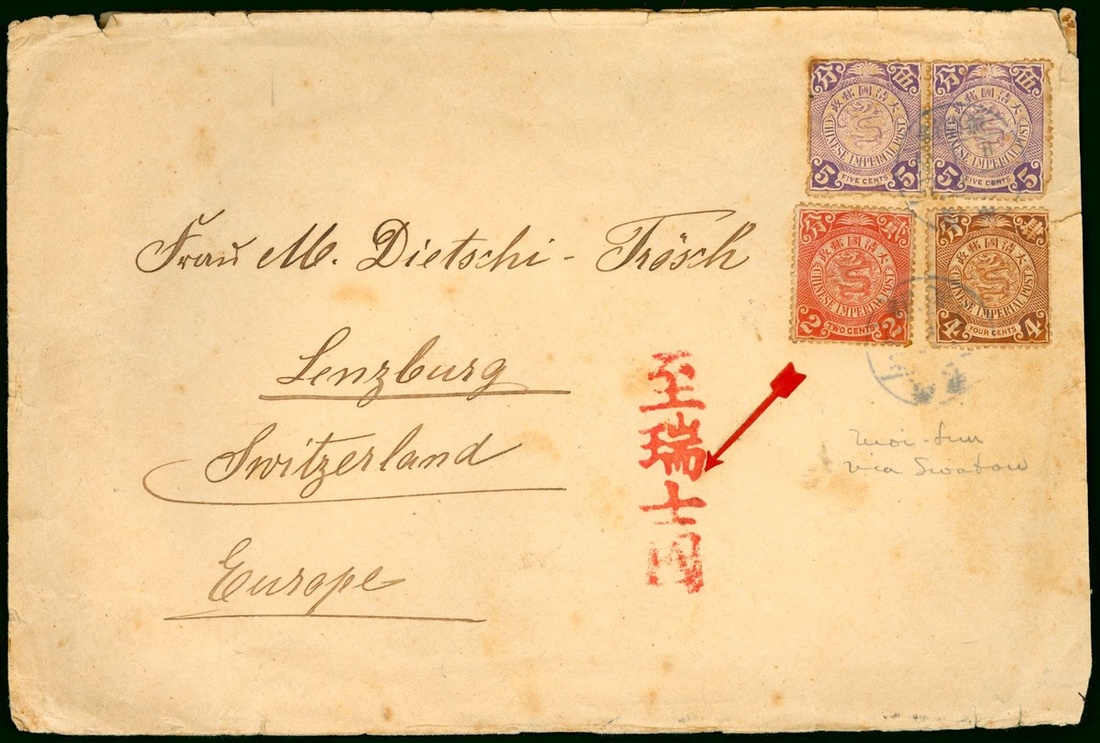 伍分
大清國郵政
CHINESE IMPERIAL POST
5 FIVE CENTS 5
伍分
大清國郵政
CHINESE IMPERIAL POST
5 FIVE CENTS 5
貳分
大清國郵政
CHINESE IMPERIAL POST
2 TWO CENTS 2
肆分
大清國郵政
CHINESE IMPERIAL POST
4 FOUR CENTS 4
Frau M. Dietschi - Trösch
Lenzburg
Switzerland
Europe
至瑞士國
via Swatow